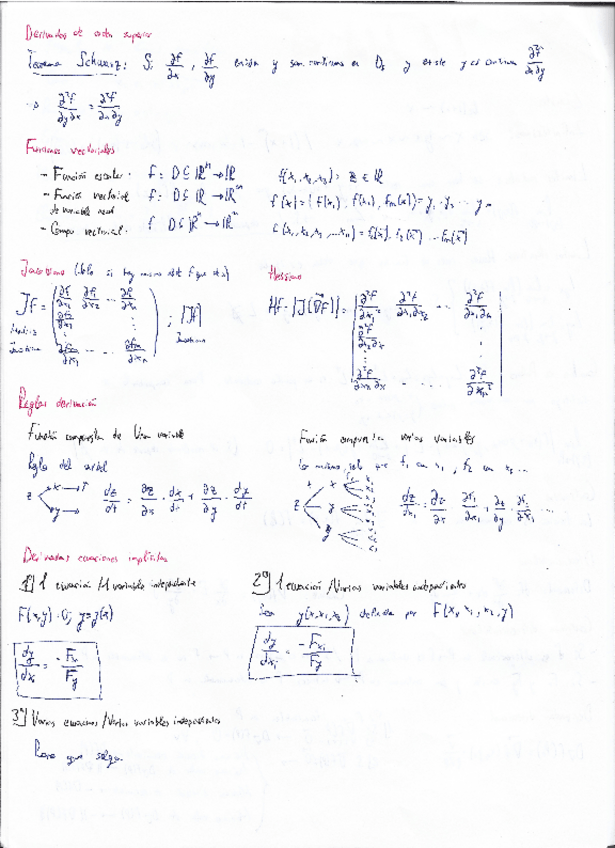 Derivadas de orden superior
Teorema Schwarz: Si ∂f/∂x, ∂f/∂y existen y son continuas en D, y existe y es continua ∂²f/∂x∂y
=> ∂²f/∂y∂x = ∂²f/∂x∂y
Funciones vectoriales
- Función escalar. f: D⊆ℝⁿ→ℝ f(x₁,x₂,x₃) = z ∈ ℝ
- Función vectorial de variable real f: D⊆ℝ→ℝᵐ f(x) = (f₁(x), f₂(x), fₘ(x)) = y₁, y₂ ... yₘ
- Campo vectorial. f: D⊆ℝⁿ→ℝᵐ f(x₁,x₂,x₃,...xₙ) = f₁(x̄), f₂(x̄) ... fₘ(x̄)
Jacobiano (solo si hay mismo nº de f que de x)
Hessiano
Jf = (∂f₁/∂x₁ ∂f₁/∂x₂ ... ∂f₁/∂xₙ ; ∂f₂/∂x₁ ⋮ ; ∂fₘ/∂x₁ ... ∂fₘ/∂xₙ) ; |Jf|
Matriz Jacobiana
Jacobiano
Hf = |J(∇f)| = |∂²f/∂x₁² ∂²f/∂x₁∂x₂ ... ∂²f/∂x₁∂xₙ ; ∂²f/∂x₂∂x₁ ⋮ ; ∂²f/∂xₙ∂x₁ ... ∂²f/∂xₙ²|
Reglas derivación
Función compuesta de una variable
Regla del árbol
z x → t y → t dz/dt = ∂z/∂x · dx/dt + ∂z/∂y · dy/dt
Función compuesta varias variables
Lo mismo, solo que f₁ con x₁, f₂ con x₂ ...
z x y dz/dx₁ = ∂z/∂x · ∂f₁/∂x₁ + ∂z/∂y · ∂f₂/∂x₁ ...
Derivadas ecuaciones implícitas
1º) 1 ecuación /1 variable independiente
F(x,y) = 0; y = y(x)
dy/dx = -Fx/Fy
2º) 1 ecuación /Varias variables independientes
Sea y(x,x₁,x₂) definida por F(x, x₁, x₂, y)
dy/dxᵢ = -Fxᵢ/Fy
3º) Varias ecuaciones /Varias variables independientes
Reza que salga.